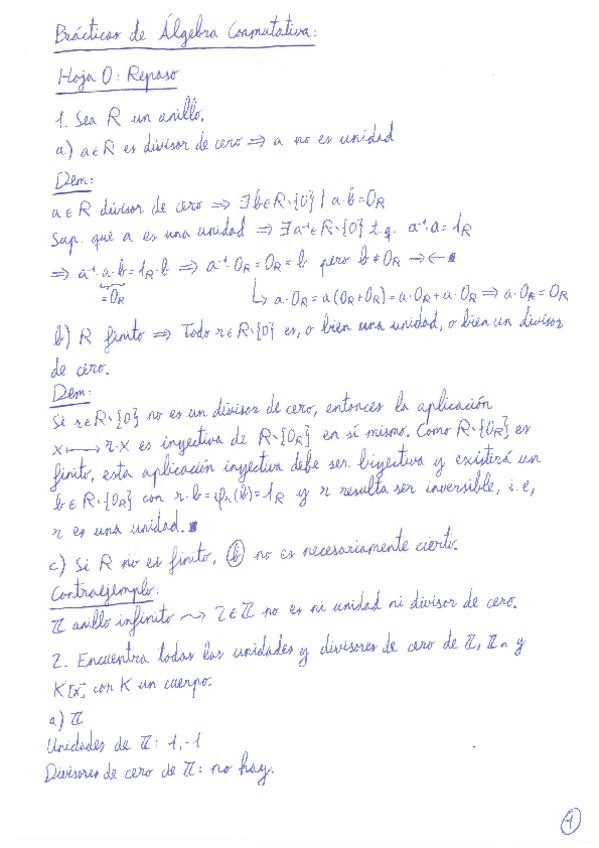 Prácticas de Álgebra Conmutativa:
Hoja 0: Repaso
1. Sea R un anillo.
a) a∈R es divisor de cero ⇒ a no es unidad
Dem:
a∈R divisor de cero ⇒ ∃b∈R∖{0} | a·b=0_R
Sup. que a es una unidad ⇒ ∃a⁻¹∈R∖{0} t.q. a⁻¹·a=1_R
⇒ a⁻¹·a·b=1_R·b ⇒ a⁻¹·0_R=0_R=b pero b≠0_R →← ■
=0_R
↳ a·0_R=a(0_R+0_R)=a·0_R+a·0_R ⇒ a·0_R=0_R
b) R finito ⇒ Todo r∈R∖{0} es, o bien una unidad, o bien un divisor
de cero.
Dem:
Si r∈R∖{0} no es un divisor de cero, entonces la aplicación
x ⟼ r·x es inyectiva de R∖{0_R} en sí mismo. Como R∖{0_R} es
finito, esta aplicación inyectiva debe ser biyectiva y existirá un
b∈R∖{0_R} con r·b=φ_r(b)=1_R y r resulta ser inversible, i.e,
r es una unidad. ■
c) Si R no es finito, ⓑ no es necesariamente cierto.
Contraejemplo:
ℤ anillo infinito ⇝ 2∈ℤ no es ni unidad ni divisor de cero.
2. Encuentra todas las unidades y divisores de cero de ℤ, ℤn y
K[x] con K un cuerpo.
a) ℤ
Unidades de ℤ: 1,-1
Divisores de cero de ℤ: no hay.
1